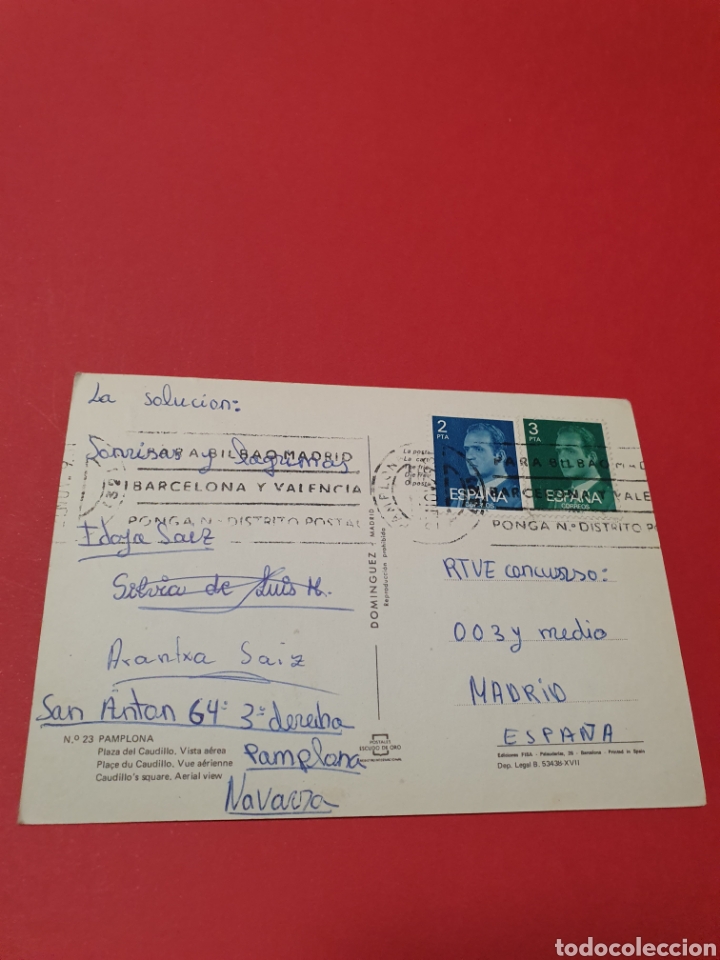 La solucion:
Sonrisas y lagrimas
PARA BILBAO MADRID
BARCELONA Y VALENCIA
PONGA N.º DISTRITO POSTAL
Saez
Silvia de Luis M.
Arantxa Saiz
San Anton 64º 3º derecha
Pamplona
Navarra
N.º 23 PAMPLONA
Plaza del Caudillo. Vista aérea
Place du Caudillo. Vue aérienne
Caudillo's square. Aerial view
DOMINGUEZ - MADRID
Reproducción prohibida
POSTALES
ESCUDO DE ORO
2
PTA
ESPAÑA
CORREOS
3
PTA
ESPAÑA
CORREOS
PARA BILBAO M D
BARCELONA Y VALE
PONGA N.º DISTRITO PO
RTVE concurso:
003 y medio
MADRID
ESPAÑA
Ediciones FISA - Palaudarias, 26 - Barcelona - Printed in Spain
Dep. Legal B. 53438-XVII
todocoleccion